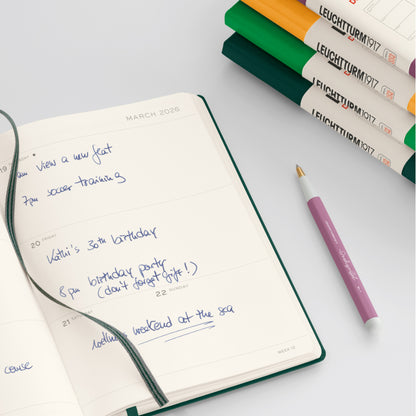 MARCH 2026
19
view a new flat
7pm soccer training
20 FRIDAY
Kathi's 30th birthday
8pm birthday party
(don't forget gifts!)
22 SUNDAY
21
wellness weekend at the sea
WEEK 12
LEUCHTTURM1917
LEUCHTTURM1917
LEUCHTTURM1917
LEUCHTTURM1917